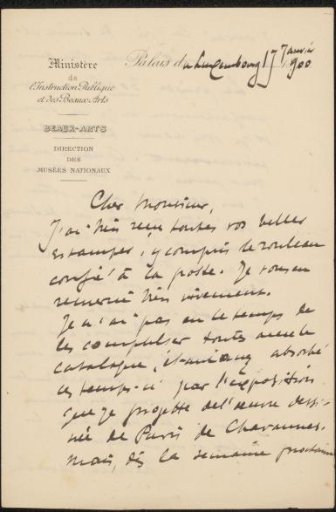 Ministère
de
l'Instruction Publique
et des Beaux-Arts
BEAUX-ARTS
DIRECTION
DES
MUSÉES NATIONAUX
Palais du Luxembourg 17 Janvier
900
Cher Monsieur,
J'ai bien reçu toutes vos belles
estampes, y compris le rouleau
confié à la poste. Je vous en
remercie très vivement.
Je n'ai pas eu le temps de
les compulser toutes avec le
catalogue, étant absorbé
ces temps-ci par l'exposition
que je projette de l'œuvre dessi-
née de Puvis de Chavannes.
Mais, dès la semaine prochaine